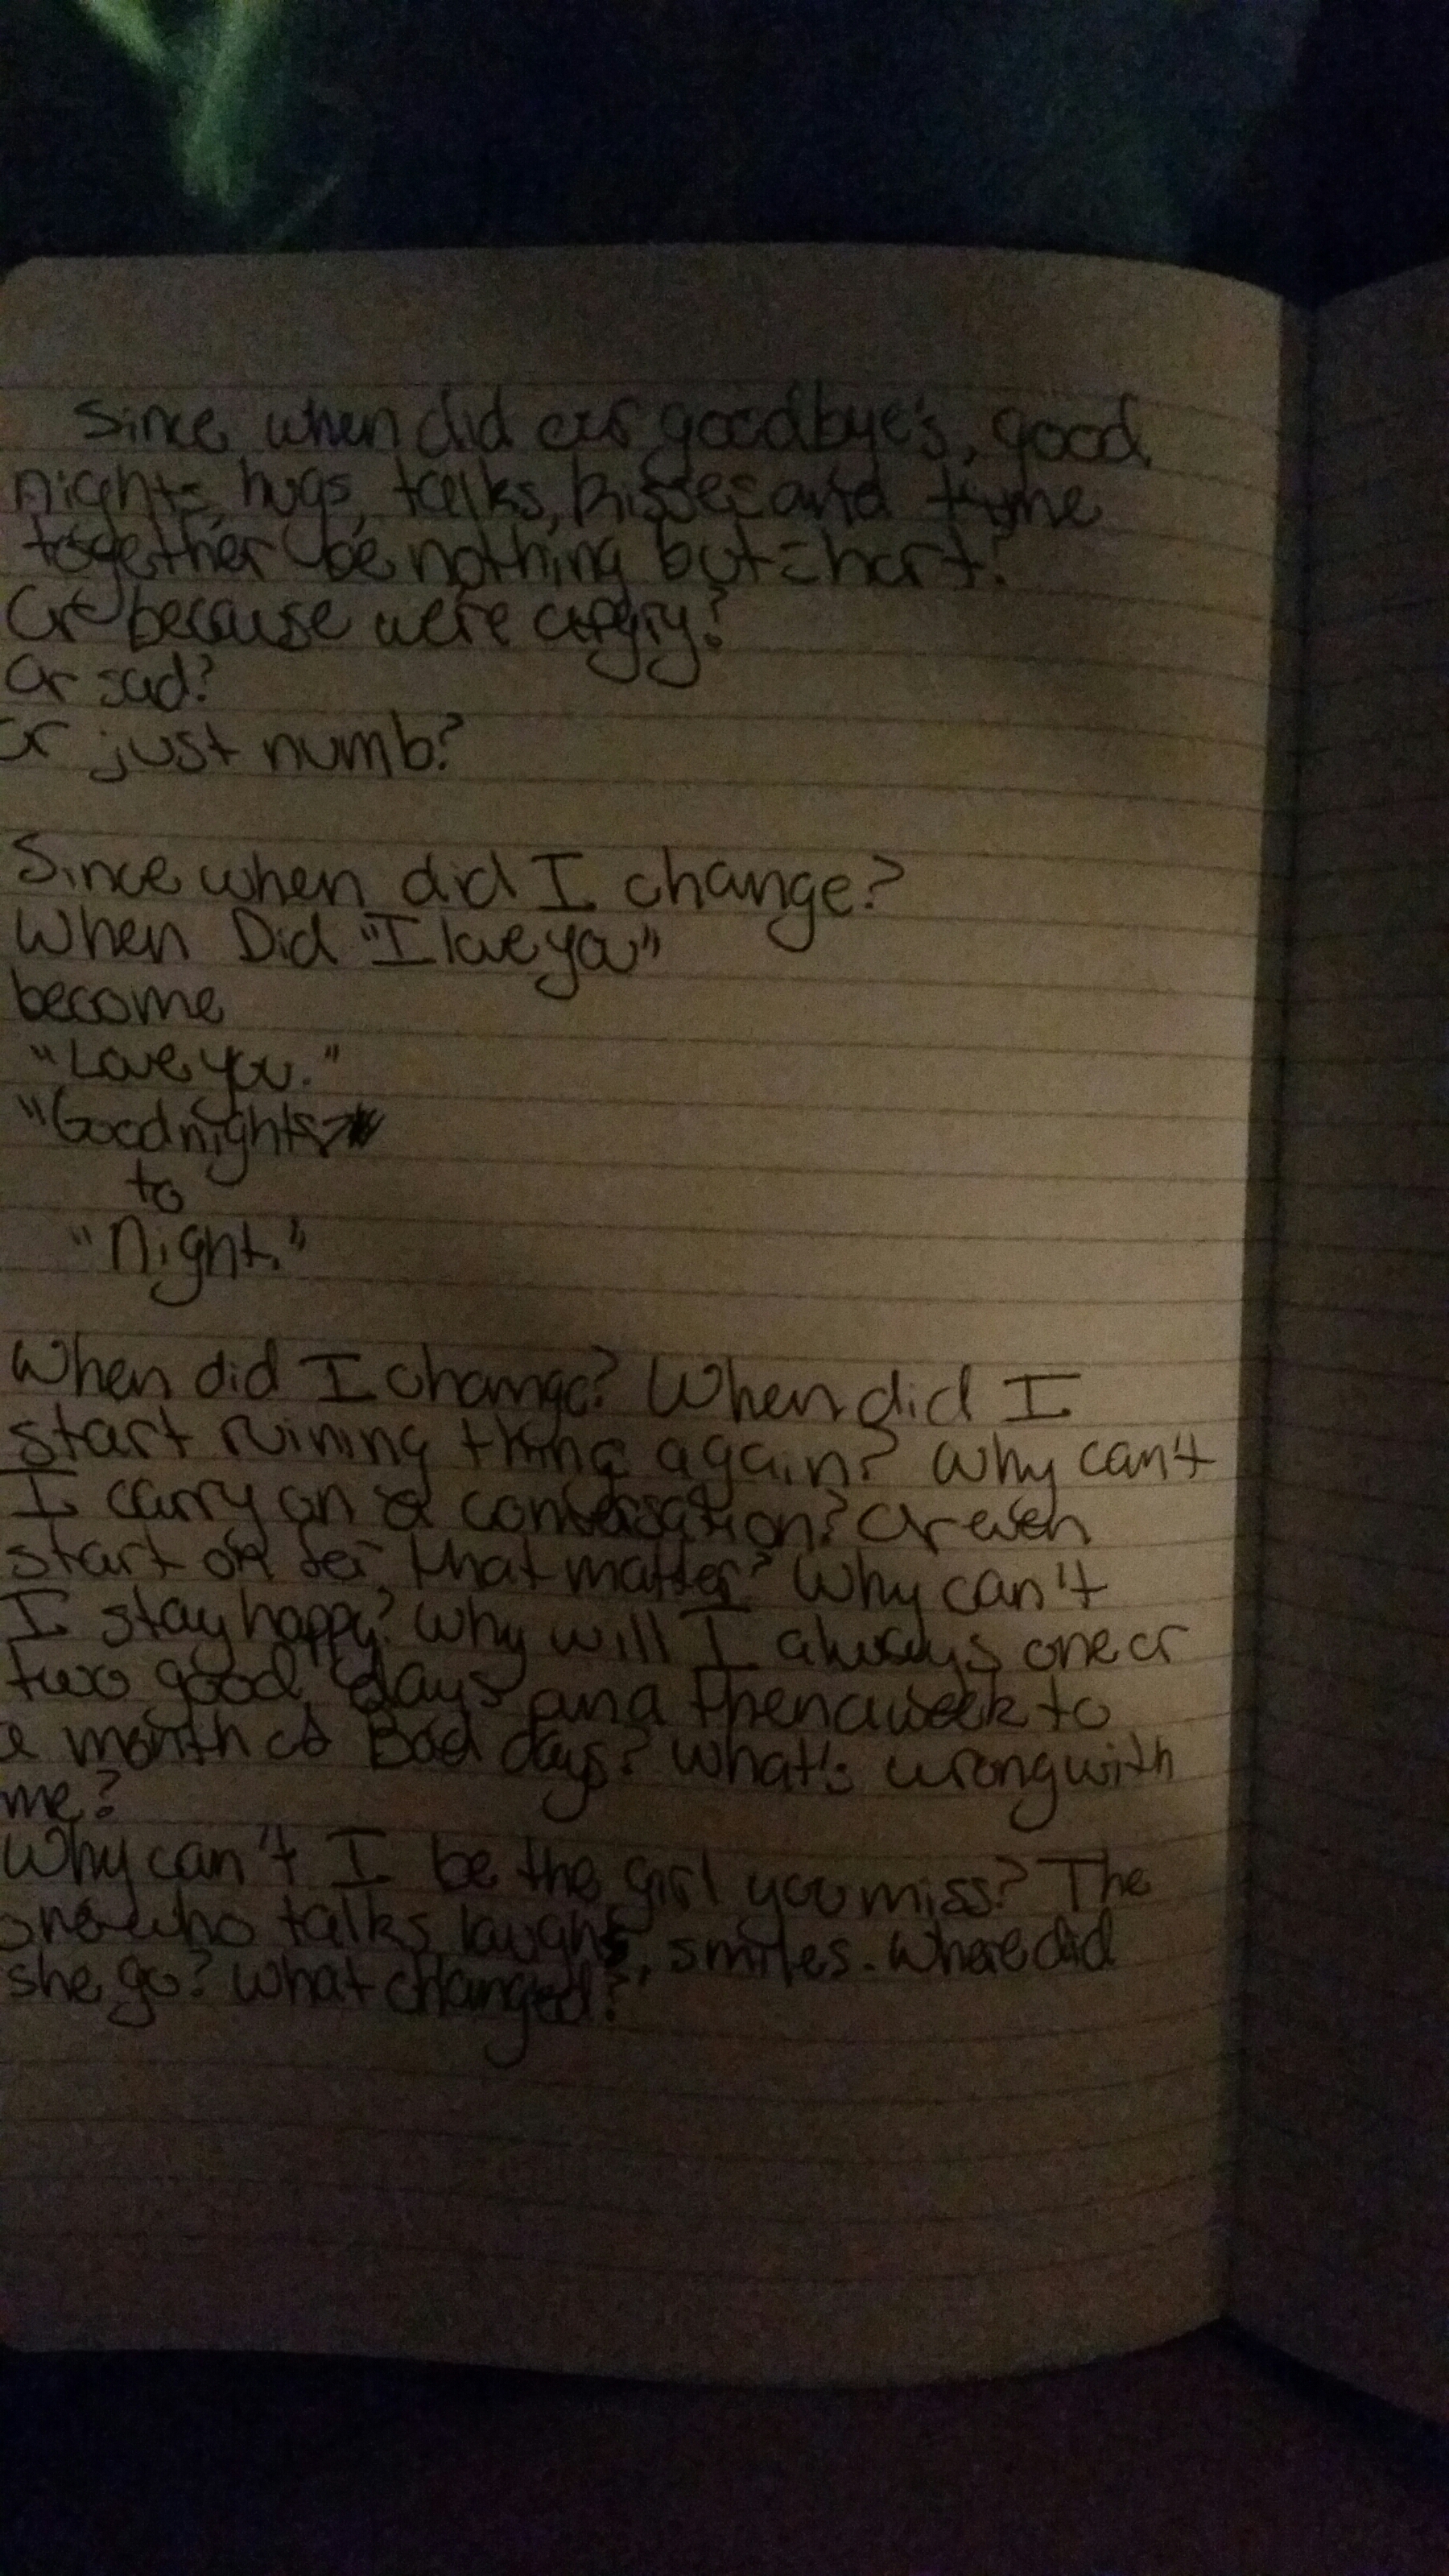 Since when did our goodbye's, good
nights, hugs, talks, kisses and time
together be nothing but short?
Or because were angry?
Or sad?
or just numb?
Since when did I change?
When Did "I love you"
become
"Love you."
"Goodnights
to
"Night."
When did I change? When did I
start ruining thing again? Why can't
I carry on a conversation? Or even
start on for that matter? Why can't
I stay happy? Why will I always one or
two good days and then a week to
a month of Bad days? What's wrong with
me?
Why can't I be the girl you miss? The
one who talks, laughs, smiles. Where did
she go? What changed?